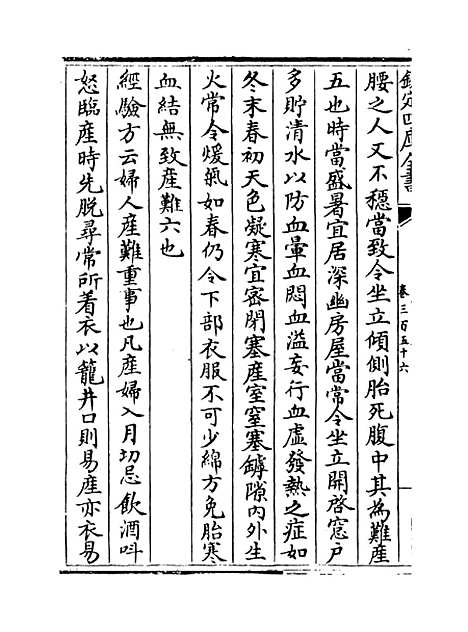 欽定四庫全書
卷三百五十六
腰之人又不穩當致令坐立傾側胎死腹中其為難產
五也時當盛暑宜居深幽房屋當常令坐立開啓窓户
多貯清水以防血暈血悶血溢妄行血虛發熱之症如
冬末春初天色凝寒宜密閉塞產室窒塞罅隙内外生
火常令煖氣如春仍令下部衣服不可少綿方免胎寒
血結無致產難六也
經驗方云婦人產難重事也凡產婦入月切忌飲酒呌
怒臨產時先脱尋常所着衣以籠井口則易產亦衣易